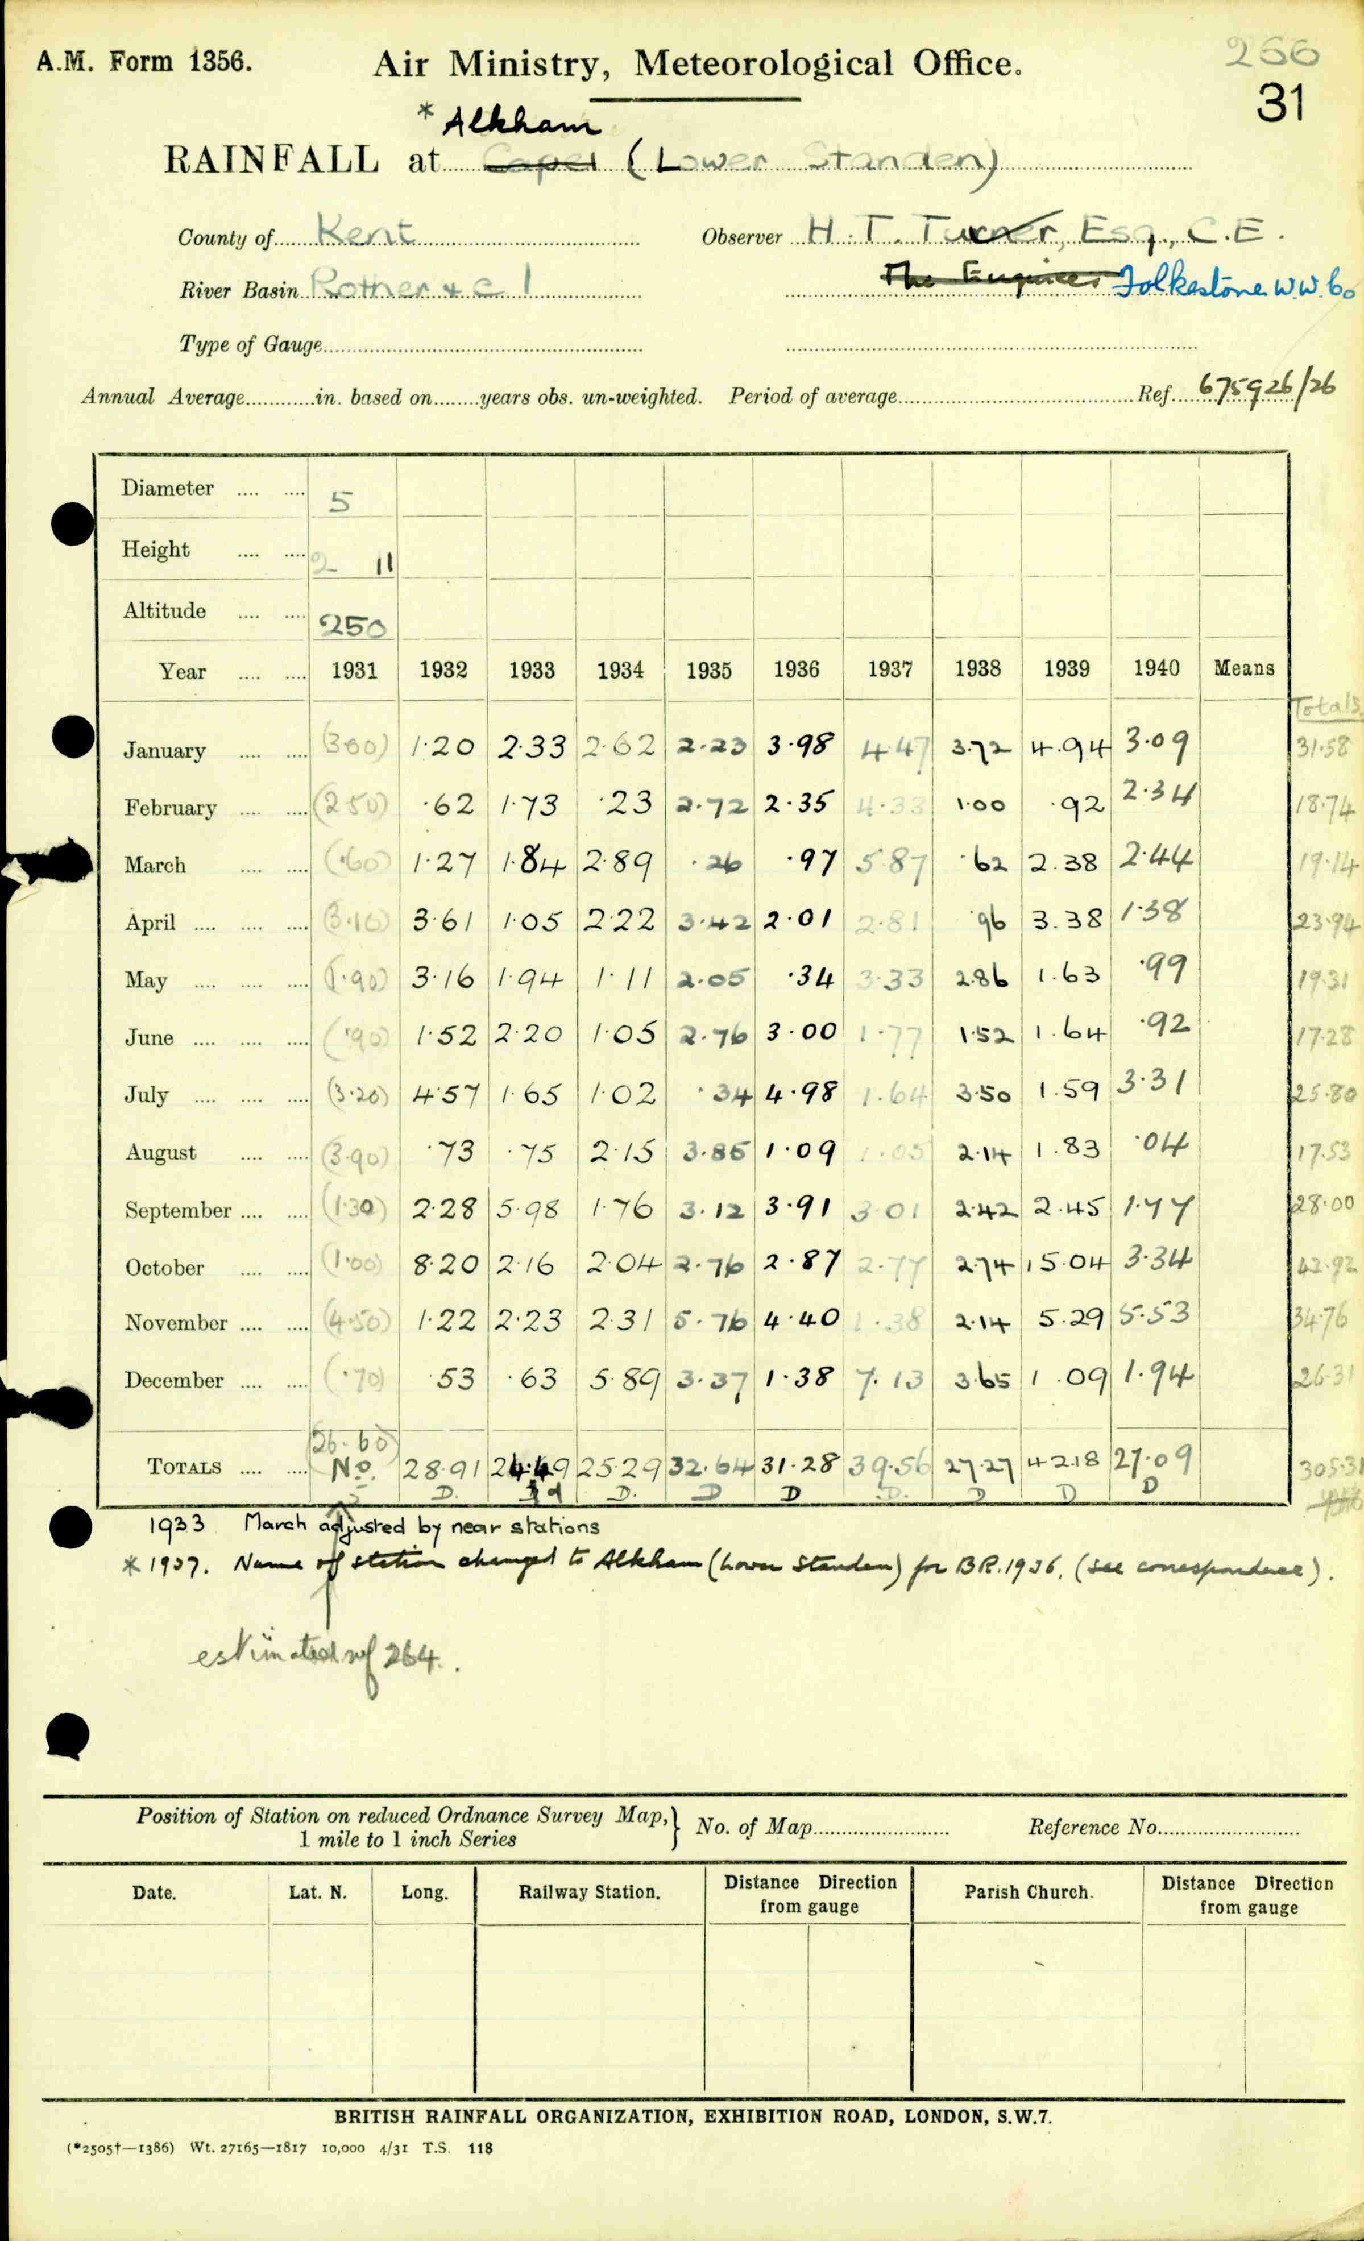 266
A.M. Form 1356. Air Ministry, Meteorological Office.
31
* Alkham
RAINFALL at Capel (Lower Standen)
County of Kent Observer H. T. Turner, Esq., C.E.
River Basin Rother & c 1 The Engineer Folkestone W.W. Co
Type of Gauge
Annual Average in. based on years obs. un-weighted. Period of average Ref. 675926/26
Diameter 5
Height 2 11
Altitude 250
Year 1931 1932 1933 1934 1935 1936 1937 1938 1939 1940 Means
Totals
January (3.00) 1.20 2.33 2.62 2.23 3.98 4.47 3.72 4.94 3.09 31.58
February (2.50) .62 1.73 .23 2.72 2.35 4.33 1.00 .92 2.34 18.74
March (.60) 1.27 1.84 2.89 .26 .97 5.87 .62 2.38 2.44 19.14
April (3.10) 3.61 1.05 2.22 3.42 2.01 2.81 .96 3.38 1.38 23.94
May (1.90) 3.16 1.94 1.11 2.05 .34 3.33 2.86 1.63 .99 19.31
June (.90) 1.52 2.20 1.05 2.76 3.00 1.77 1.52 1.64 .92 17.28
July (3.20) 4.57 1.65 1.02 .34 4.98 1.64 3.50 1.59 3.31 25.80
August (3.90) .73 .75 2.15 3.85 1.09 1.05 2.14 1.83 .04 17.53
September (1.30) 2.28 5.98 1.76 3.12 3.91 3.01 2.42 2.45 1.77 28.00
October (1.00) 8.20 2.16 2.04 2.76 2.87 2.77 2.74 15.04 3.34 42.92
November (4.50) 1.22 2.23 2.31 5.76 4.40 1.38 2.14 5.29 5.53 34.76
December (.70) .53 .63 5.89 3.37 1.38 7.13 3.65 1.09 1.94 26.31
(26.60)
TOTALS No. 28.91 24.49 25.29 32.64 31.28 39.56 27.27 42.18 27.09 305.31
D. D. D D D. D D D
1933 March adjusted by near stations
* 1937. Name of station changed to Alkham (Lower Standen) for B.R. 1936. (see correspondence).
estimated 264.
Position of Station on reduced Ordnance Survey Map, 1 mile to 1 inch Series } No. of Map Reference No.
Date. Lat. N. Long. Railway Station. Distance from gauge Direction Parish Church. Distance from gauge Direction
BRITISH RAINFALL ORGANIZATION, EXHIBITION ROAD, LONDON, S.W.7.
(*2505†—1386) Wt. 27165—1817 10,000 4/31 T.S. 118